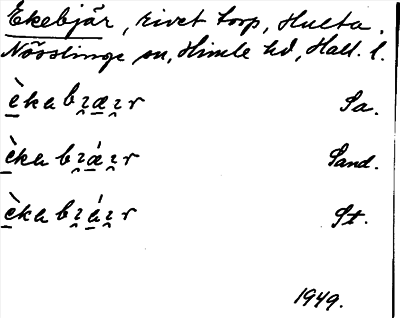 Ekebjär, rivet torp, Hulta,
Nösslinge sn, Himle hd, Hall. l.
è̱ka bı̯æ̱ı̯r Sa.
è̱ka bı̯ǽ̱ı̯r Sand.
è̱ka bı̯á̱ı̯r St.
1949.